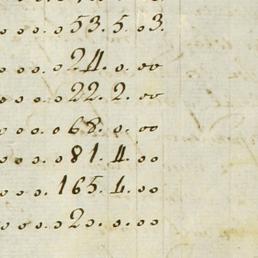 o o o . 53 . 5 . 03 .
o o o . 24 . o . oo
o o o . 22 . 2 . oo
o o o . o 68 . o . oo
o o o . o 81 . 4 . oo
o o o . 165 . 4 . oo
o o o . o 2 o . o . oo